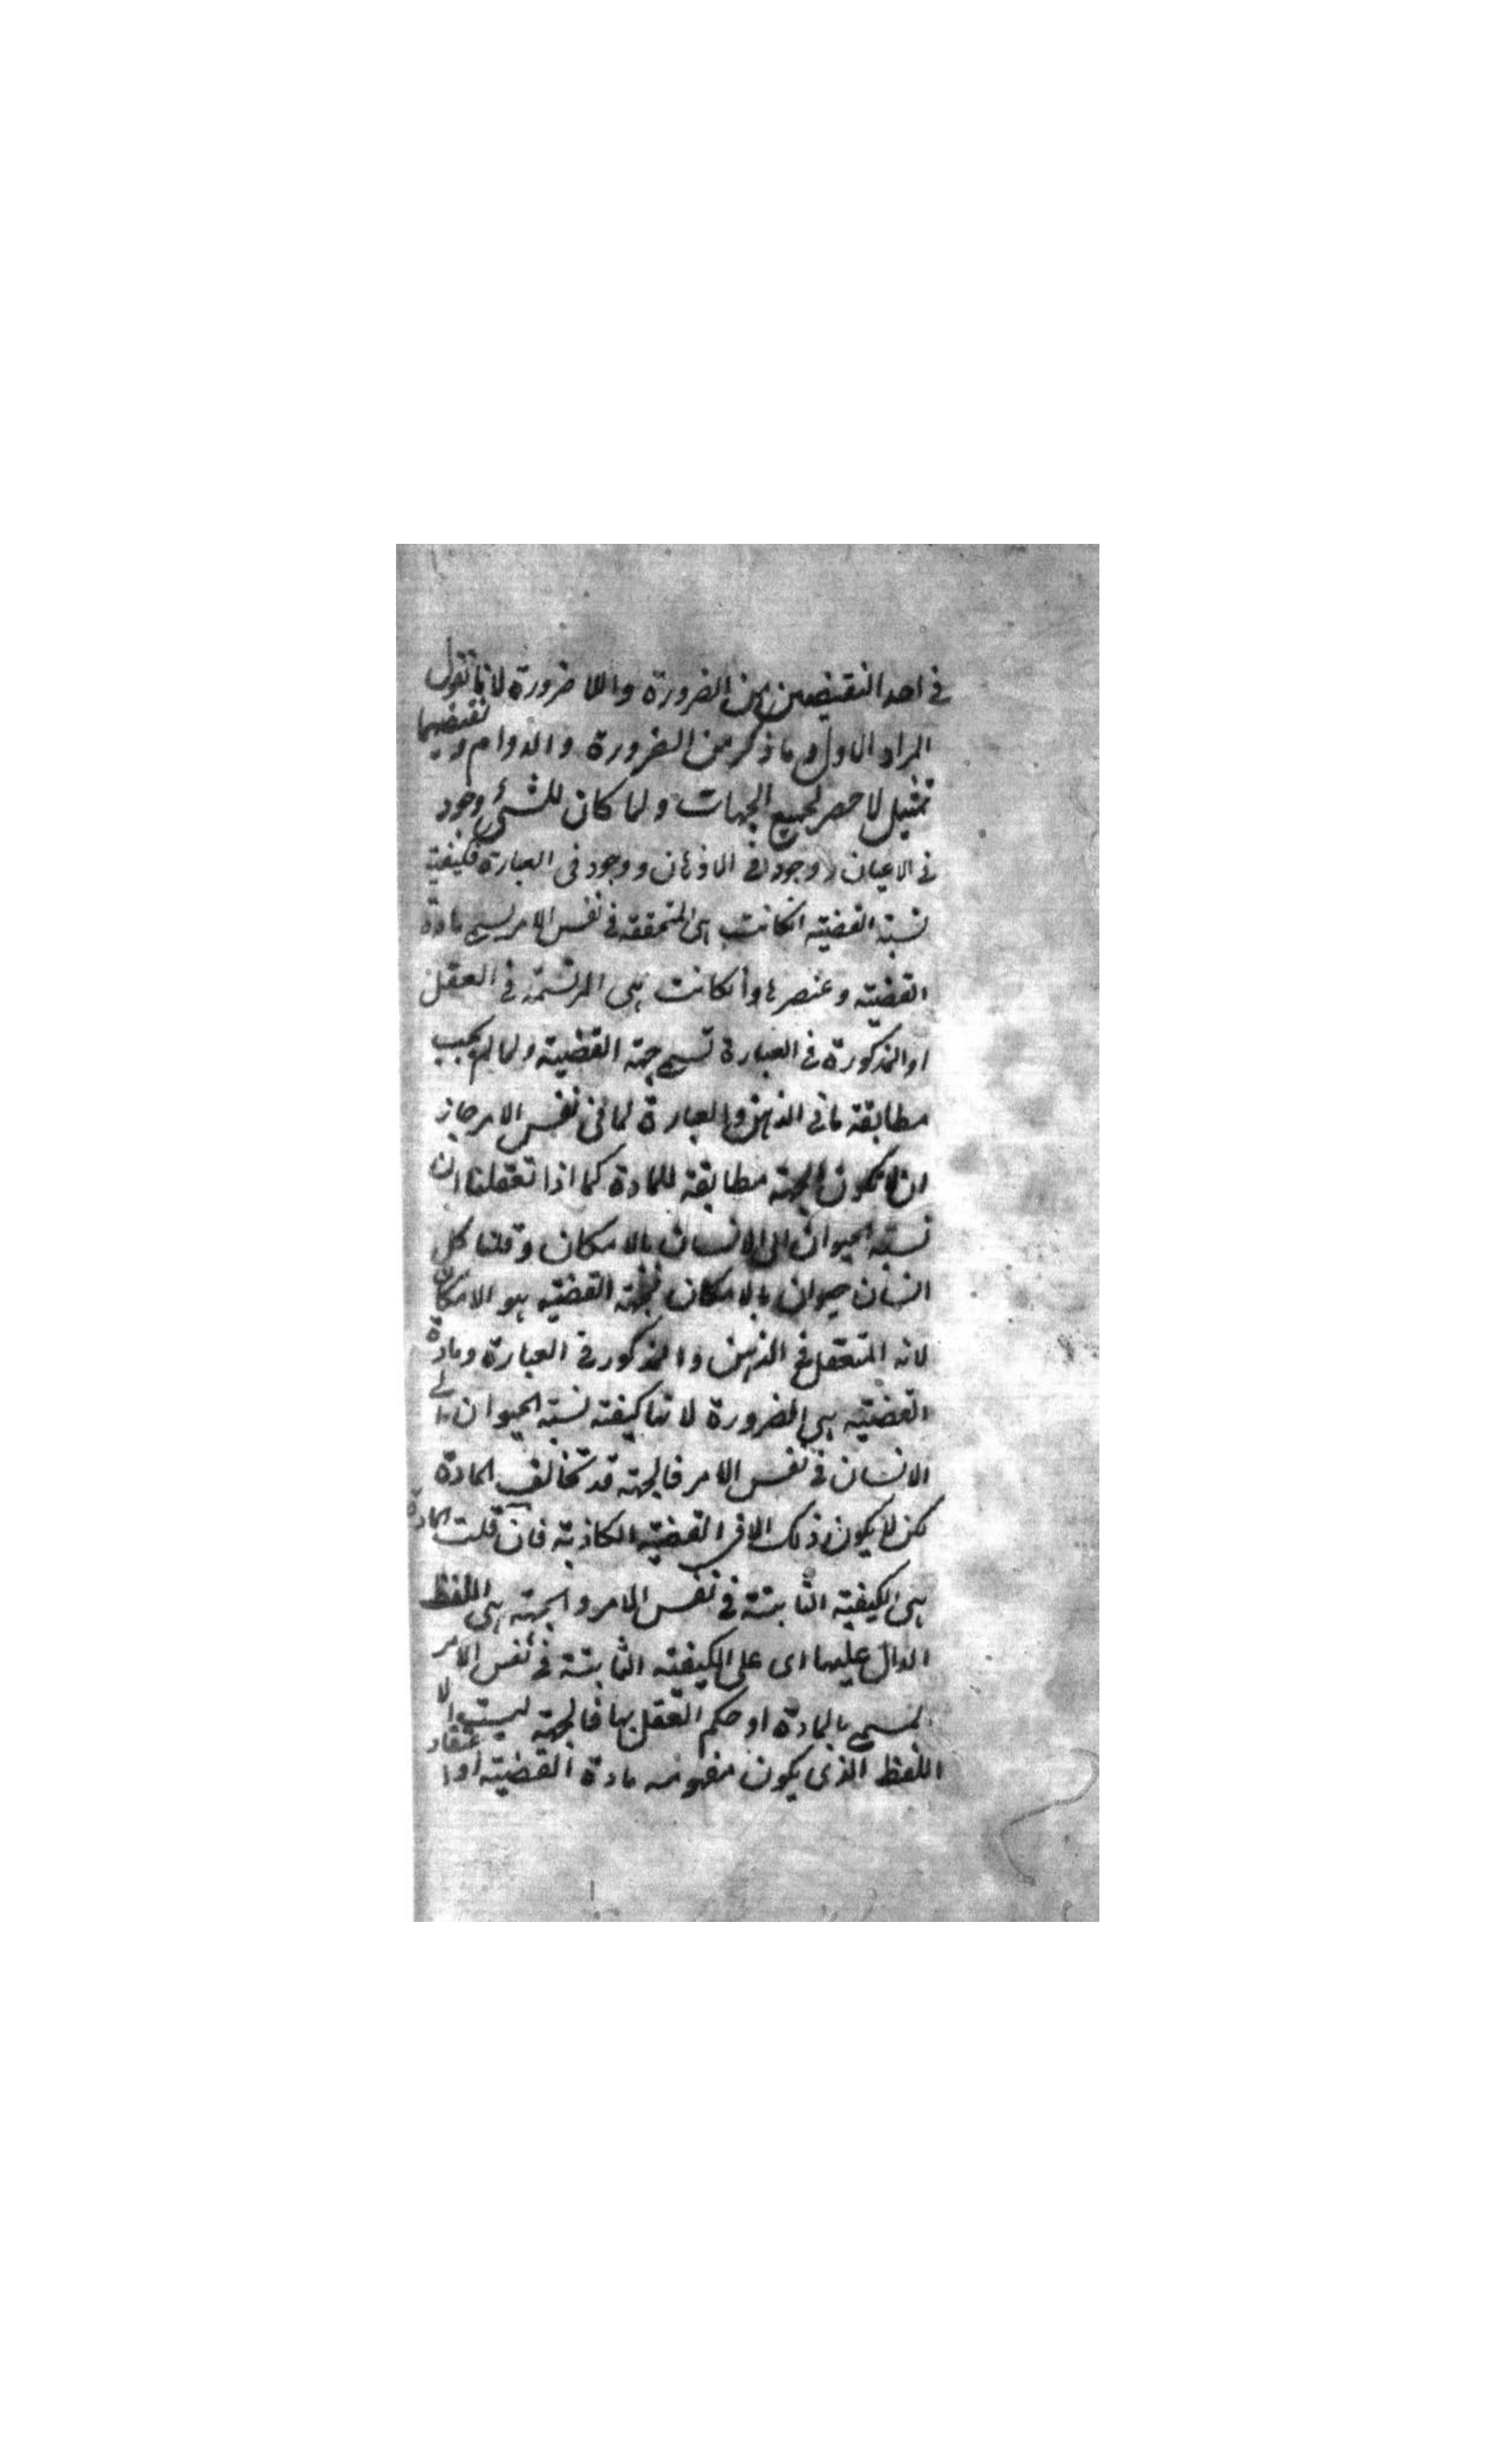 في احد النقيضين من الضرورة واللا ضرورة لانا نقول
المراد الاول وما ذكر من الضرورة والدوام ونقيضيهما
تمثيل لا حصر لجميع الجهات ولما كان للشئ وجود
في الاعيان ووجود في الاذهان ووجود في العبارة فكيفية
نسبة القضية انكانت هى المتحققة في نفس الامر تسمى مادة
القضية وعنصرها وانكانت هى المرتسمة في العقل
او المذكورة في العبارة تسمى جهة القضية ولما لم يجب
مطابقة ما في الذهن والعبارة لما في نفس الامر جاز
ان لا تكون الجهة مطابقة للمادة كما اذا تعقلنا ان
نسبة الحيوان الى الانسان بالامكان وقلنا كل
انسان حيوان بالامكان فجهة القضية هو الامكان
لانه المتعقل في الذهن والمذكور في العبارة ومادة
القضية هى الضرورة لانها كيفية نسبة الحيوان الى
الانسان في نفس الامر فالجهة قد تخالف المادة
لكن لا يكون ذلك الا في القضية الكاذبة فان قلت المادة
هى الكيفية الثابتة في نفس الامر والجهة هى اللفظ
الدال عليها اى على الكيفية الثابتة في نفس الامر
المسمى بالمادة او حكم العقل بها فالجهة ليست الا
اللفظ الذى يكون مفهومه مادة القضية او اعتقاد